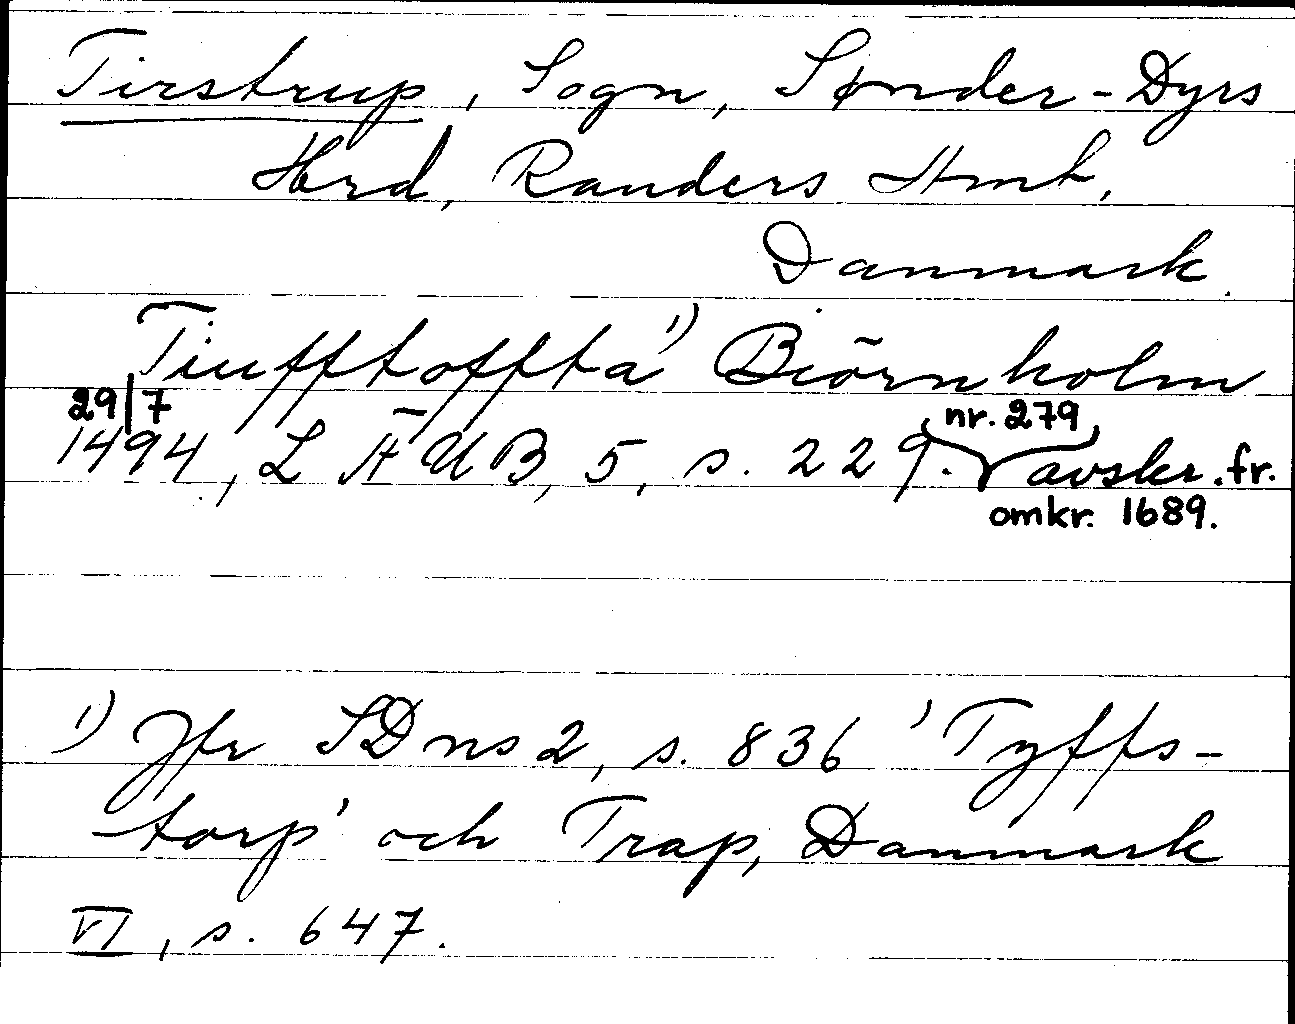 Tirstrup, Sogn, Sønder-Dyrs
Hrd, Randers Amt,
Danmark.
Tiufftoffta¹⁾ Biörnholm
29/7
1494, LÄUB, 5, s. 229. nr. 279, avskr. fr.
omkr. 1689.
¹⁾ Jfr SDns2, s. 836 'Tyffs-
torp' och Trap, Danmark
VI, s. 647.